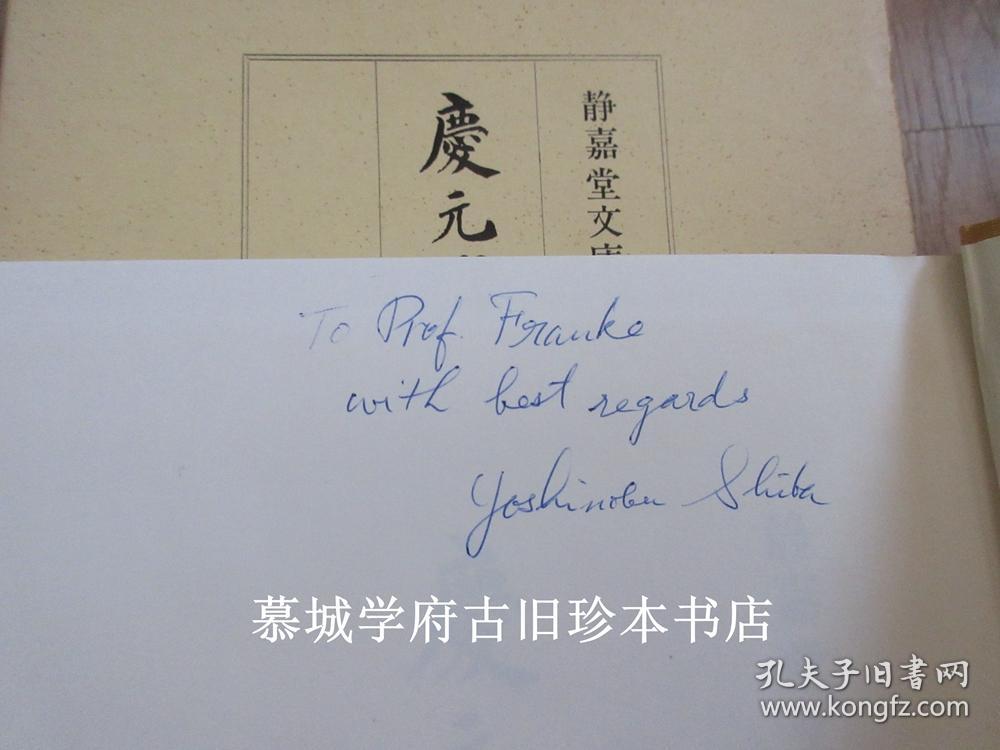 静嘉堂文庫
慶元
To Prof. Franke
with best regards
Yoshinobu Shiba
慕城学府古旧珍本书店
孔夫子旧书网
www.kongfz.com